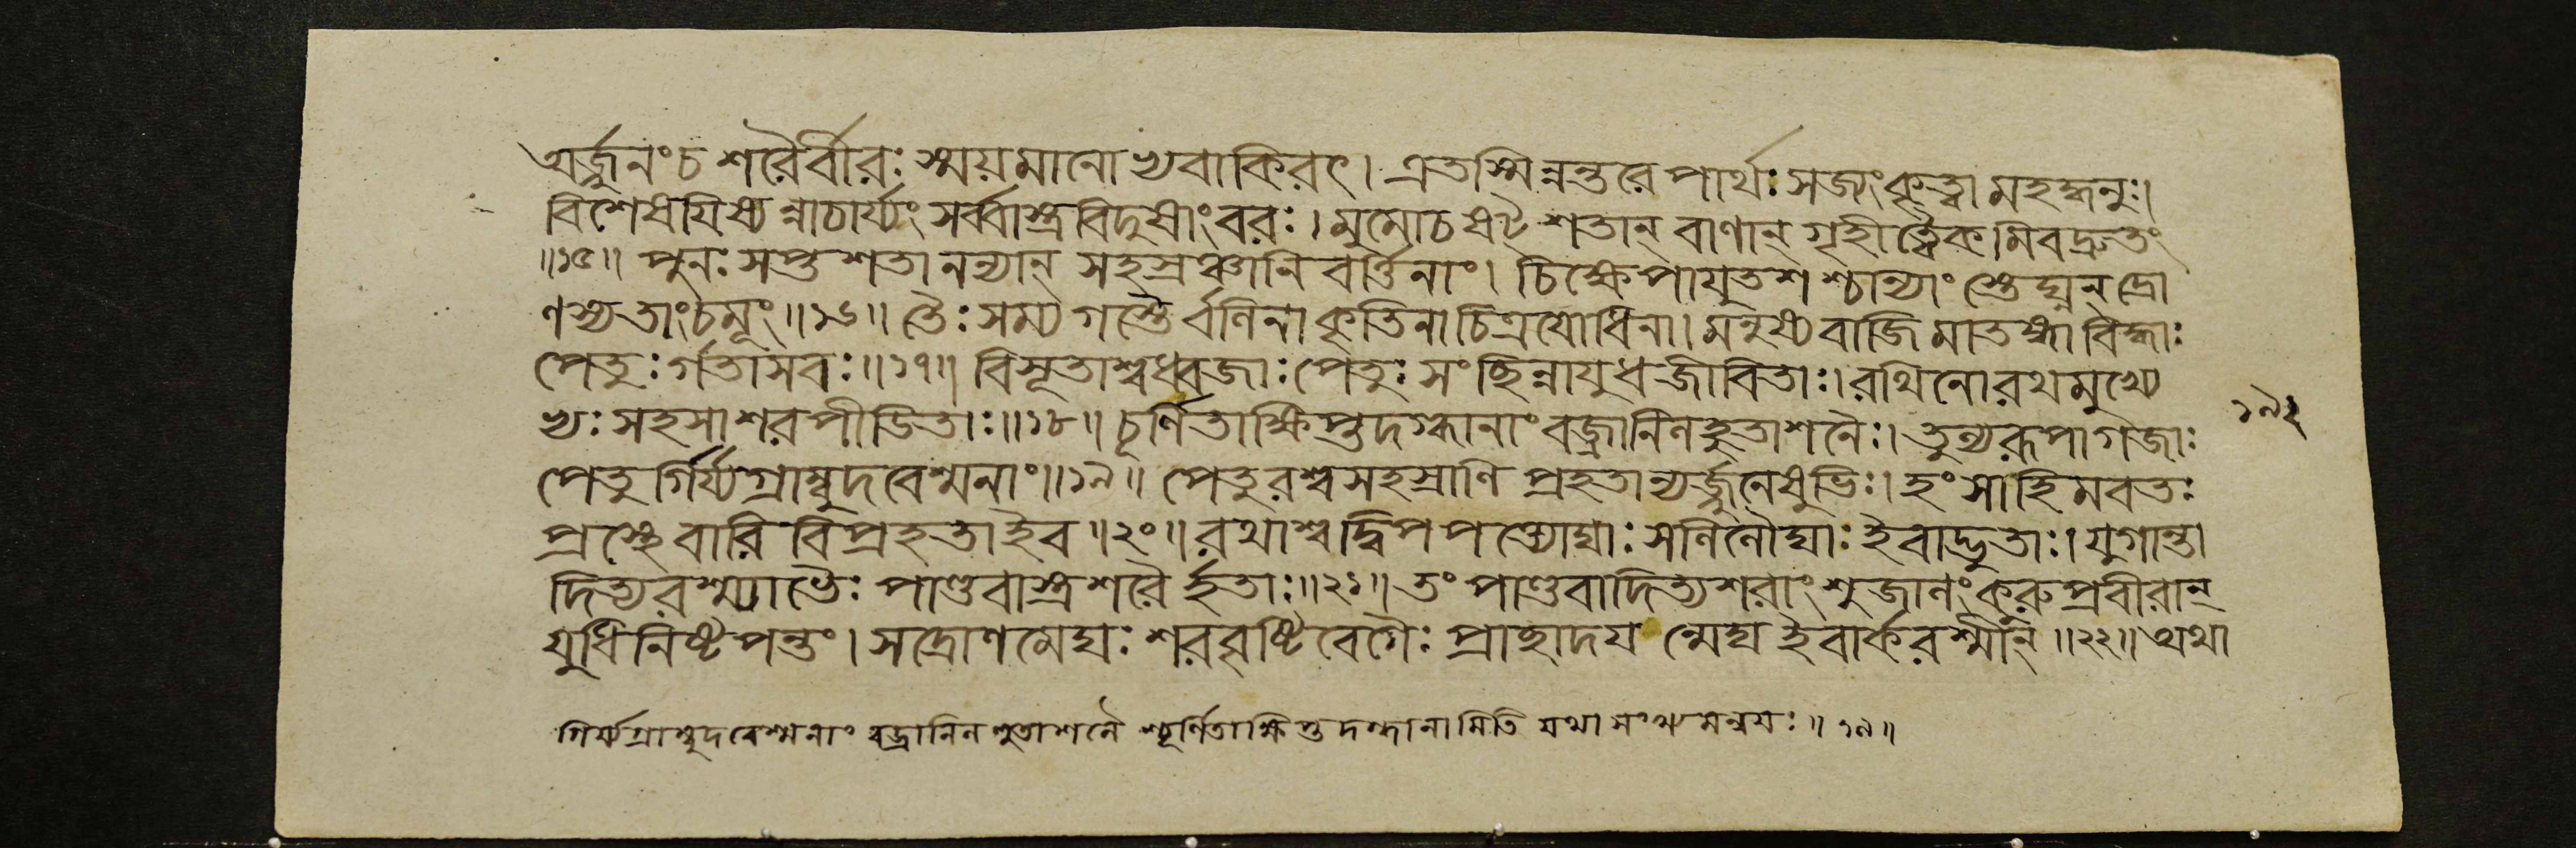 অর্জ্জুনংচ শরৈর্বীরঃ স্ময়মানো খবাকিরৎ। এতস্মিন্নন্তরে পার্থঃ সজ্যংকৃত্বা মহদ্ধনুঃ।
বিশেষয়িষ্যন্নাচার্য্যং সর্ব্বাস্ত্রবিদুষাংবরঃ। মুমোচ ষট্ শতান্ বাণান্ গৃহীত্বৈকমিবদ্রুতং
॥১৫॥ পুনঃ সপ্ত শতানন্যান্ সহস্রঞ্চানি বর্ত্তিনাং। চিক্ষেপাযুতশশ্চান্যাং স্তেঘ্নন্ দ্রো
ণস্যতাংচমূং॥১৬॥ তৈঃ সম্যগস্তৈর্বলিনা কৃতিনা চিত্রযোধিনা। মনুষ্যবাজিমাতঙ্গাবিদ্ধাঃ
পেতুঃর্গতাসবঃ॥১৭॥ বিসূতাশ্বধ্বজাঃ পেতুঃ সংছিন্নাযুধজীবিতাঃ। রথিনোরথমুখ্যে
ভ্যঃ সহসাশরপীডিতাঃ॥১৮॥ চূর্ণিতাক্ষিপ্তদগ্ধানাং বজ্রানিলহুতাশনৈঃ। তুল্যরূপাগজাঃ
পেতুর্গির্য্যগ্রাম্বুদবেশ্মনাং॥১৯॥ পেতুরশ্বসহস্রাণি প্রহতান্যর্জ্জুনেষুভিঃ। হংসাহিমবতঃ
প্রস্থেবারি বিপ্রহতাইব॥২০॥ রথাশ্বদ্বিপপত্ত্যোঘাঃ সলিলৌঘাঃ ইবাদ্ভুতাঃ। যুগান্তা
দিত্যরশ্ম্যাভৈঃ পাণ্ডবাস্ত্রশরৈর্হতাঃ॥২১॥ তং পাণ্ডবাদিত্যশরাংশুজালংকুরুপ্রবীরান্
যুধিনিষ্টপন্তং। সদ্রোণমেঘঃ শরবৃষ্টিবেগৈঃ প্রাচ্ছাদয়ন্মেঘ ইবার্করশ্মীন্॥২২॥ অথা
১৯২
গির্য্যগ্রাম্বুদবেশ্মনাং বজ্রানিলহুতাশনৈশ্চূর্ণিতাক্ষিপ্তদগ্ধানামিতি যথাসংখ্যমন্বয়ঃ॥১৯॥